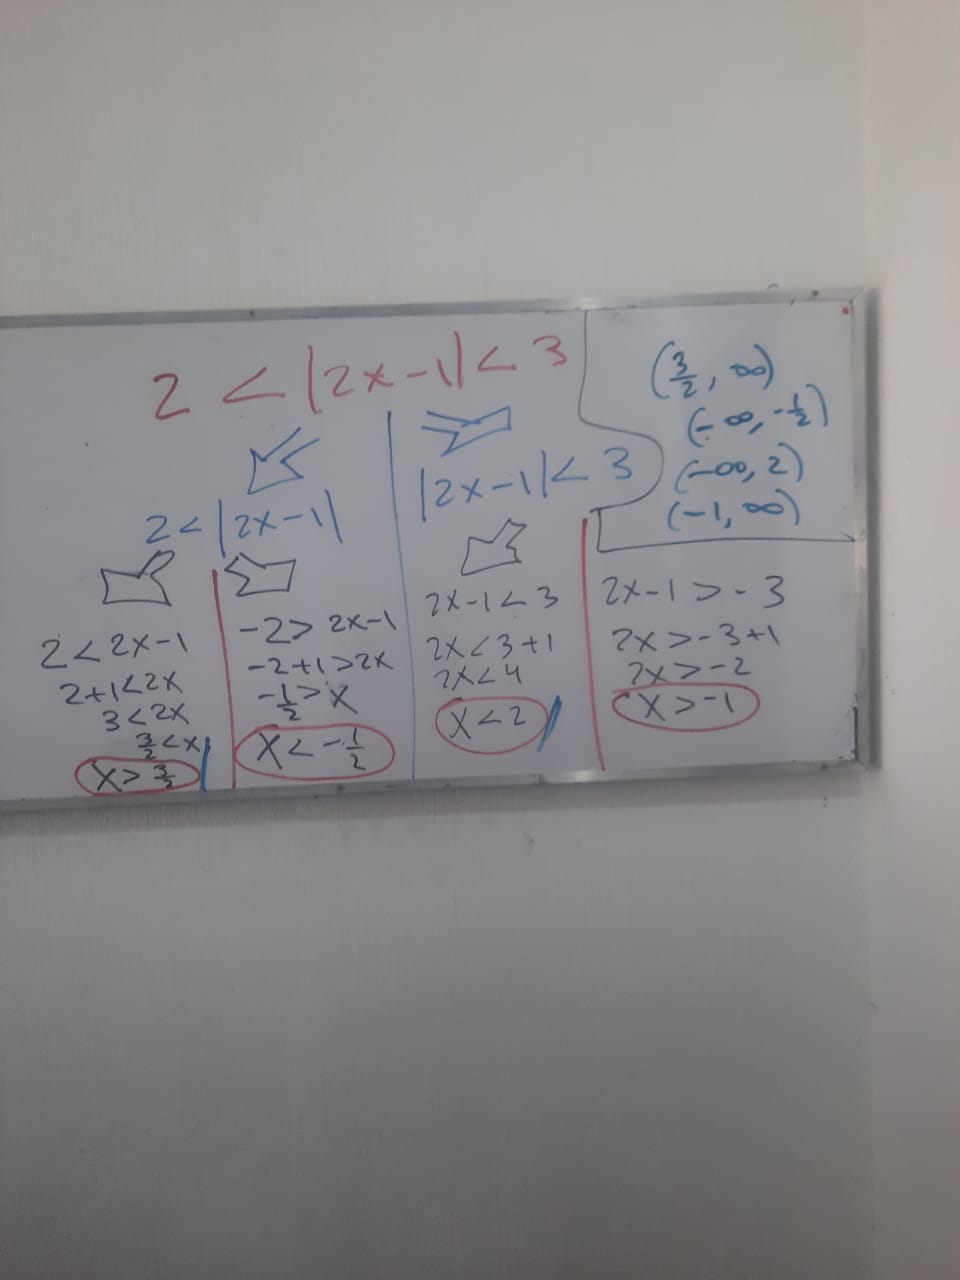 2 < |2x-1| < 3
2 < |2x-1|
2 < 2x-1
2+1 < 2x
3 < 2x
3/2 < x
x > 3/2
-2 > 2x-1
-2+1 > 2x
-1/2 > x
x < -1/2
|2x-1| < 3
2x-1 < 3
2x < 3+1
2x < 4
x < 2
2x-1 > -3
2x > -3+1
2x > -2
x > -1
(3/2, ∞)
(-∞, -1/2)
(-∞, 2)
(-1, ∞)